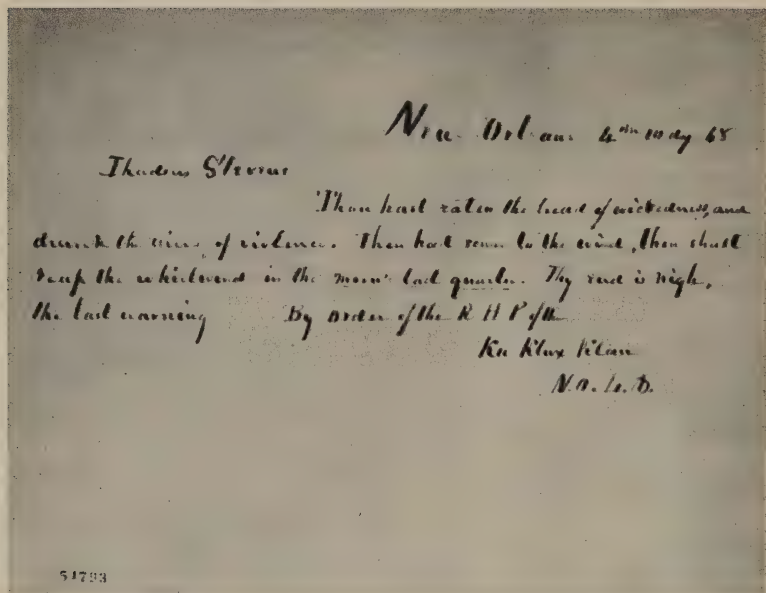 New Orleans 4th May 68
Thadeus Stevens
Thou hast eaten the bread of wickedness, and
drunk the wine of violence. Thou hast sown to the wind, thou shalt
reap the whirlwind in the moon's last quarter. Thy end is nigh,
the last warning By order of the K H P of the
Ku Klux Klan
51793